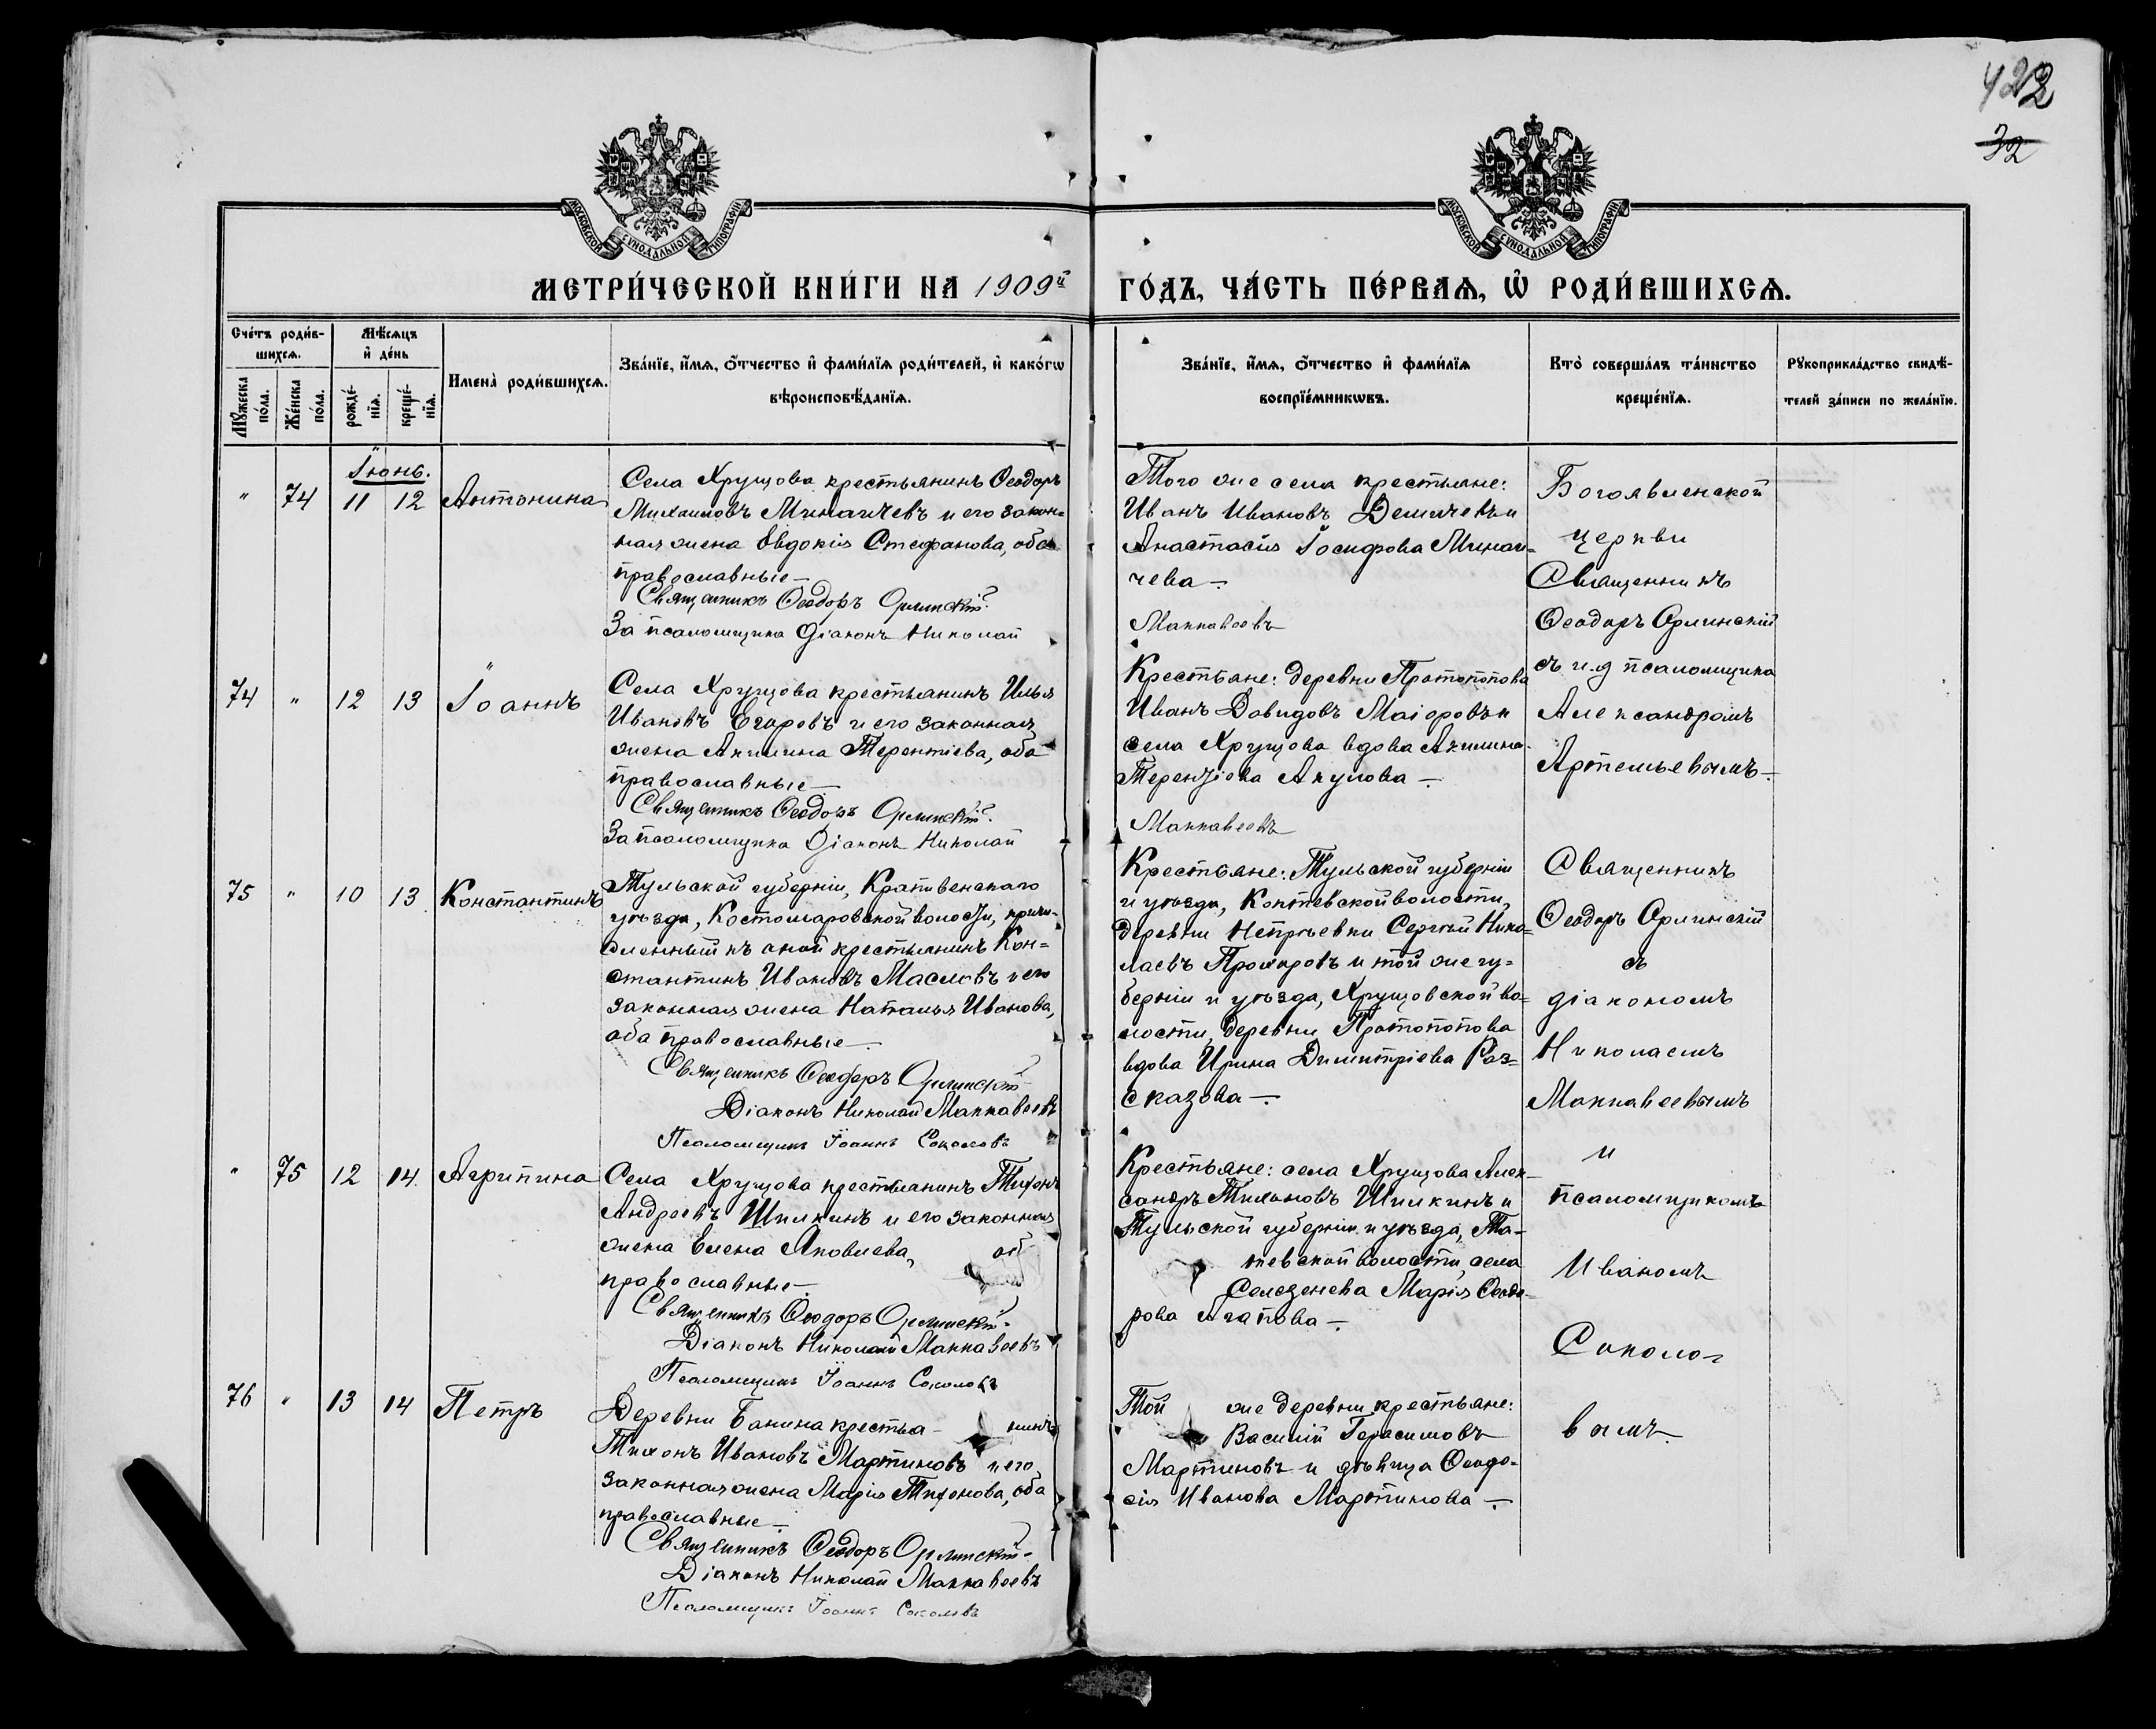 422
32
МОСКОВСКОЙ СѴНОДАЛЬНОЙ ТИПОГРАФІИ
МОСКОВСКОЙ СѴНОДАЛЬНОЙ ТИПОГРАФІИ
МЕТРИ́ЧЕСКОЙ КНИ́ГИ НА 1909й ГО́ДЪ, ЧА́СТЬ ПЕ́РВАѦ, Ѡ҆ РОДИ́ВШИХСѦ.
Сче́тъ роди́в-
шихсѧ.
Мꙋ́жеска
по́ла.
Же́нска
по́ла.
Мѣ́сѧцъ
и҆ де́нь
рожде́-
нїѧ.
креще́-
нїѧ.
Имена̀ роди́вшихсѧ.
Зва́нїе, и҆́мѧ, о҆́тчество и҆ фами́лїѧ роди́телей, и҆ како́гѡ
вѣроисповѣ́данїѧ.
Зва́нїе, и҆́мѧ, о҆́тчество и҆ фами́лїѧ
воспрїе́мникѡвъ.
Кто̀ соверша́лъ та́инство
креще́нїѧ.
Рꙋкоприкла́дство свидѣ́-
телей за́писи по жела́нїю.
Іюнь.
" 74 11 12 Антонина
Села Хрущова крестьянинъ Ѳеодоръ
Михаиловъ Минаичевъ и его закон=
ная жена Евдокія Стефанова, оба
православные —
Священникъ Ѳеодоръ Орлинскій.
За псаломщика Діаконъ Николай
Того же села крестьяне:
Иванъ Ивановъ Демичевъ и
Анастасія Іосифова Минаи-
чева —.
Маккавеевъ
Богоявленской
церкви
Священникъ
Ѳеодоръ Орлинскій
съ и.д псаломщика
Александромъ
Артемьевымъ —.
74 " 12 13 Іоаннъ
Села Хрущова крестьянинъ Илья
Ивановъ Егоровъ и его законная
жена Акилина Терентіева, оба
православные —
Священникъ Ѳеодоръ Орлинскій.
За псаломщика Діаконъ Николай
Крестьяне: деревни Протопопова
Иванъ Давидовъ Маіоровъ и
села Хрущова вдова Акилина
Терентіева Акулова —.
Маккавеевъ
75 " 10 13 Константинъ
Тульской губерніи, Крапивенскаго
уѣзда, Костомаровской волости, причи-
сленный къ оной крестьянинъ Кон=
стантинъ Ивановъ Масловъ и его
законная жена Наталья Иванова,
оба православные —.
Священникъ Ѳеодоръ Орлинскій
Діаконъ Николай Маккавеевъ
Псаломщикъ Іоаннъ Соколовъ
Крестьяне: Тульской губерніи
и уѣзда, Коптевской волости,
деревни Непрѣевки Сергѣй Нико=
лаевъ Прохоровъ и той же гу=
берніи и уѣзда, Хрущовской во=
лости, деревни Протопопова
вдова Ирина Димитріева Раз=
сказова —.
Священникъ
Ѳеодоръ Орлинскій
съ
діакономъ
Николаемъ
Маккавеевымъ
и
псаломщикомъ
Иваномъ
Соколо=
вымъ.
" 75 12 14 Агрипина
Села Хрущова крестьянинъ Тихонъ
Андреевъ Шилкинъ и его законная
жена Елена Яковлева, об
православные —.
Священникъ Ѳеодоръ Орлинскій
Діаконъ Николай Маккавеевъ
Псаломщикъ Іоаннъ Соколовъ
Крестьяне: села Хрущова Алек-
сандръ Тихоновъ Шилкинъ и
Тульской губерніи и уѣзда, Та-
тевской волости, села
Селезнева Марія Ѳеодо-
рова Агапова —.
76 " 13 14 Петръ
Деревни Банина крестья- нинъ
Тихонъ Ивановъ Мартиновъ и его
законная жена Марія Тихонова, оба
православные —.
Священникъ Ѳеодоръ Орлинскій
Діаконъ Николай Маккавеевъ
Псаломщикъ Іоаннъ Соколовъ
Той же деревни крестьяне:
Василій Герасимовъ
Мартиновъ и дѣвица Ѳеодо=
сія Иванова Мартинова —.